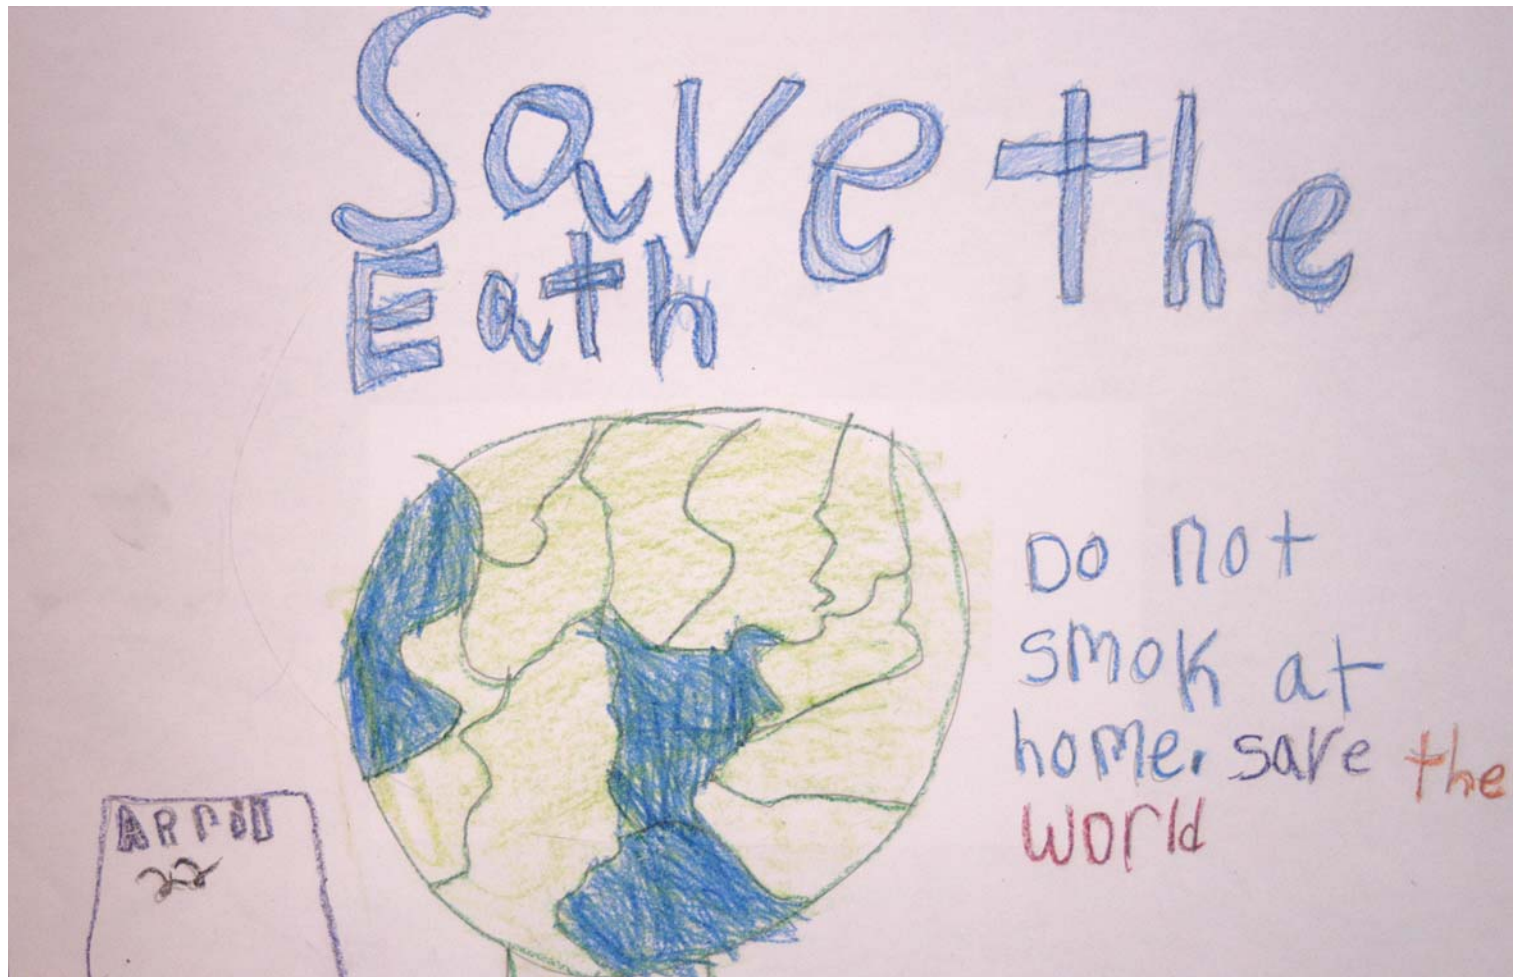 Save the
Eath
Do not
smok at
home. save the
world
22